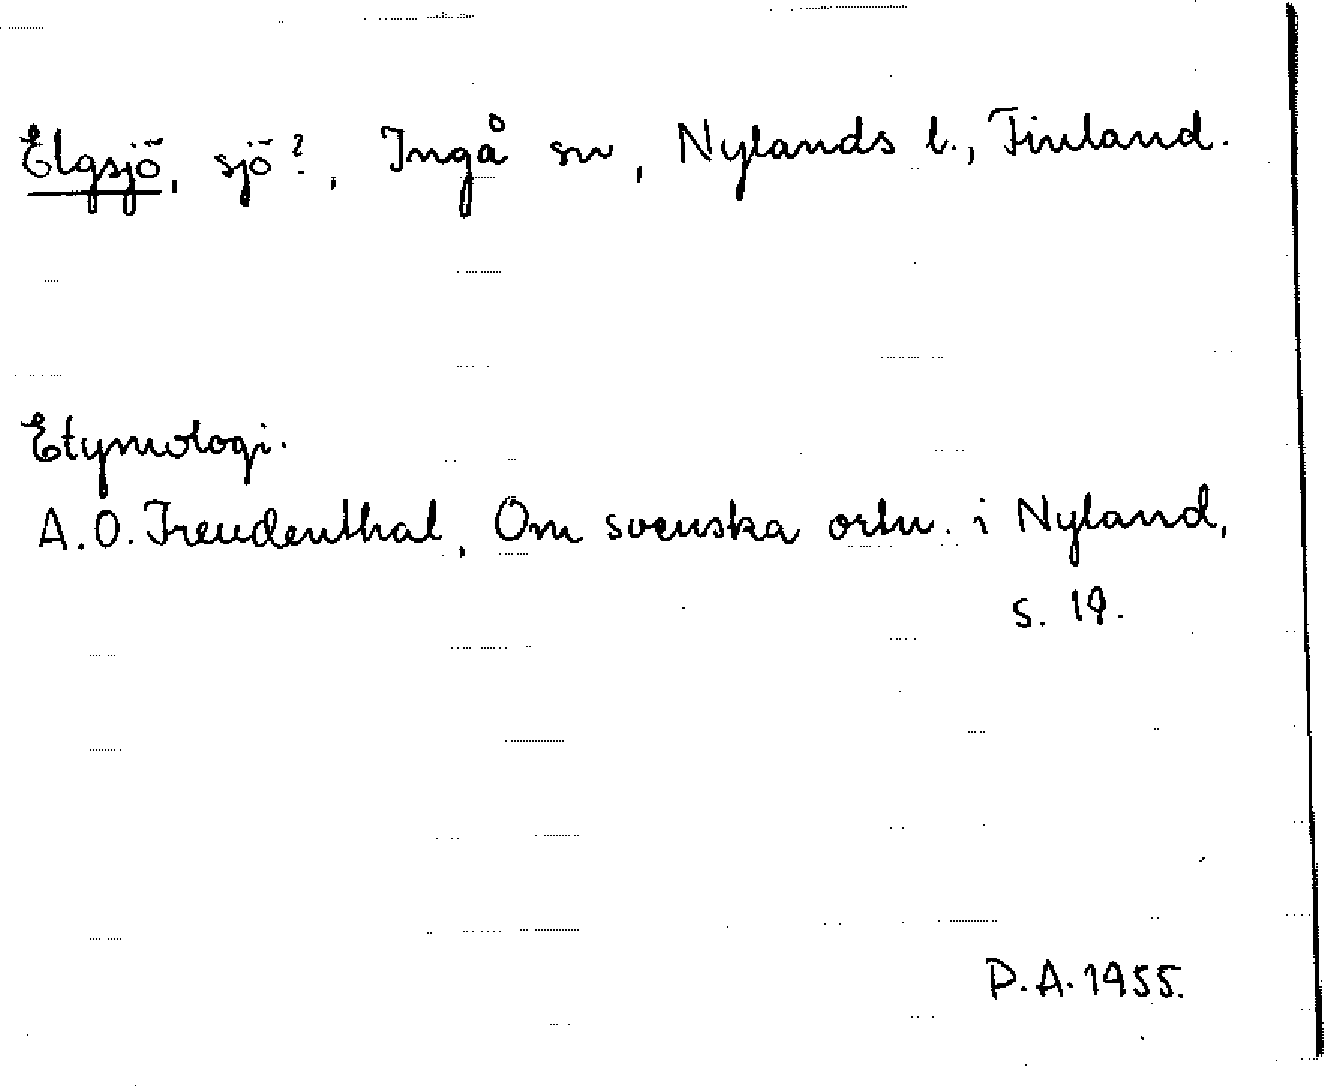 Elgsjö, sjö?, Ingå sn, Nylands l., Finland.
Etymologi.
A.O. Freudenthal, Om svenska ortn. i Nyland,
s. 19.
P.A. 1955.